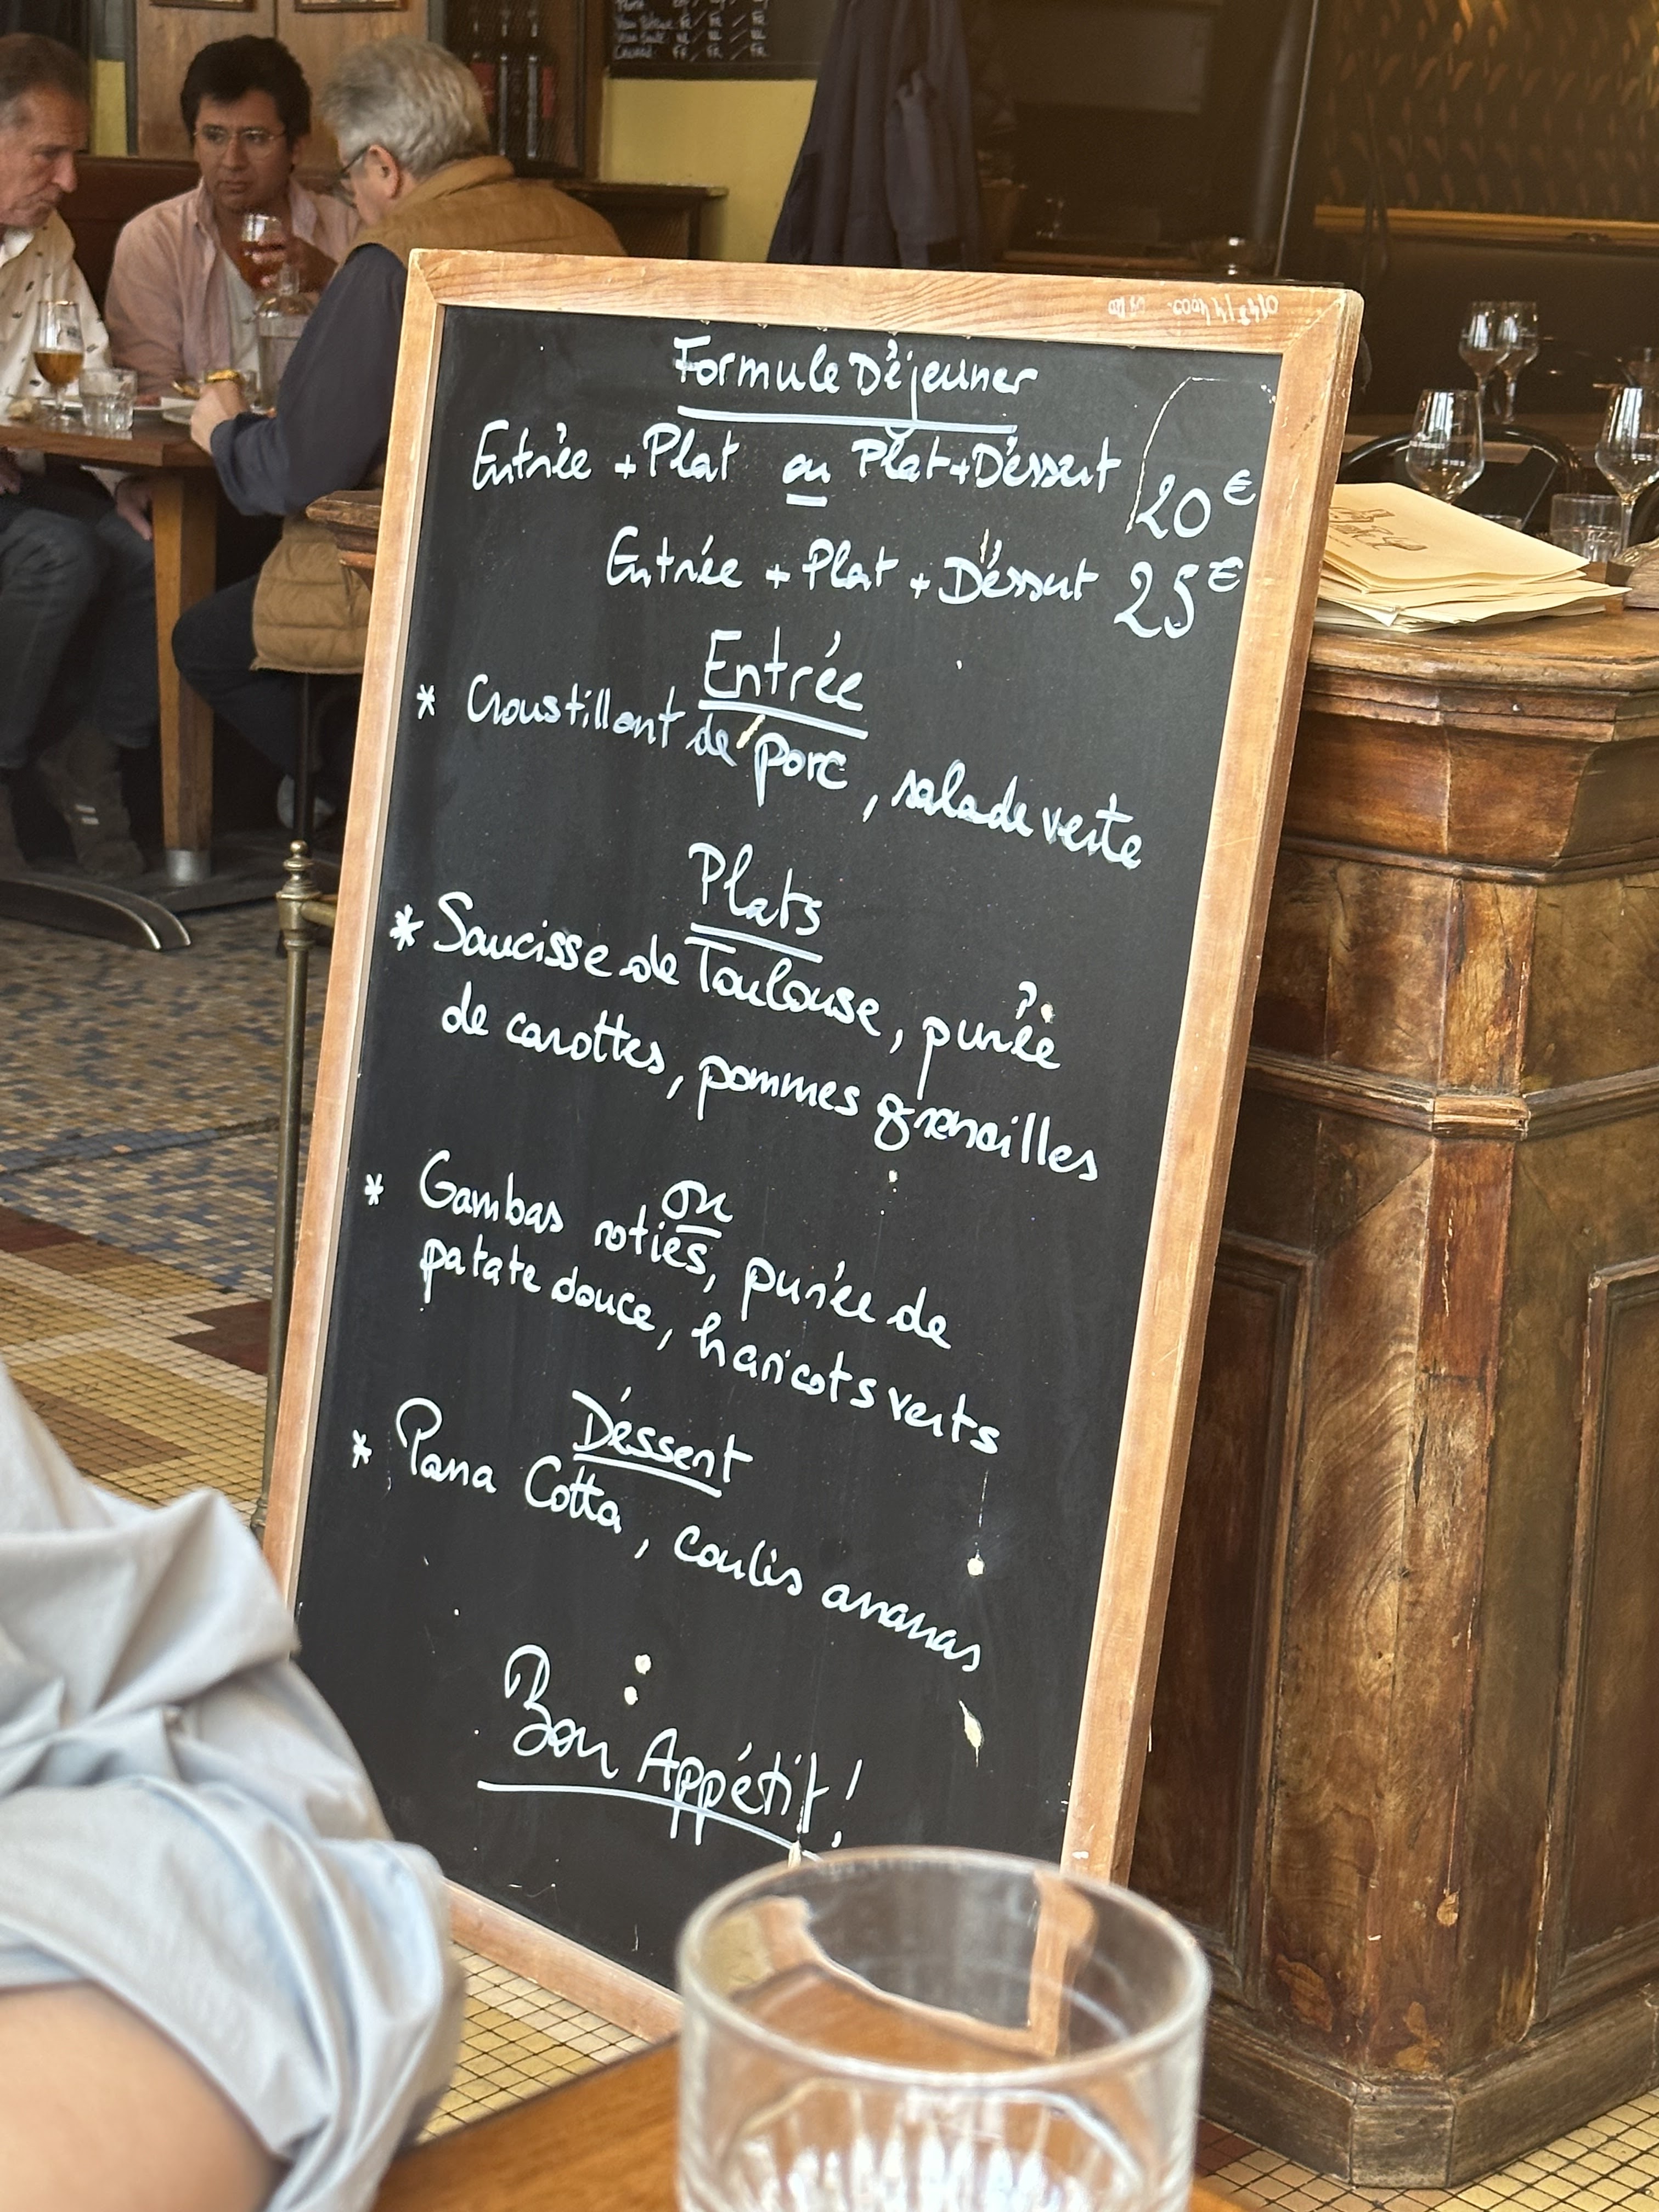 Formule Déjeuner
Entrée + Plat ou Plat + Déssert 20€
Entrée + Plat + Déssert 25€
Entrée
* Croustillant de porc, salade verte
Plats
* Saucisse de Toulouse, purée
de carottes, pommes grenailles
ou
* Gambas roties, purée de
patate douce, haricots verts
Déssert
* Pana Cotta, coulis ananas
Bon Appétit!